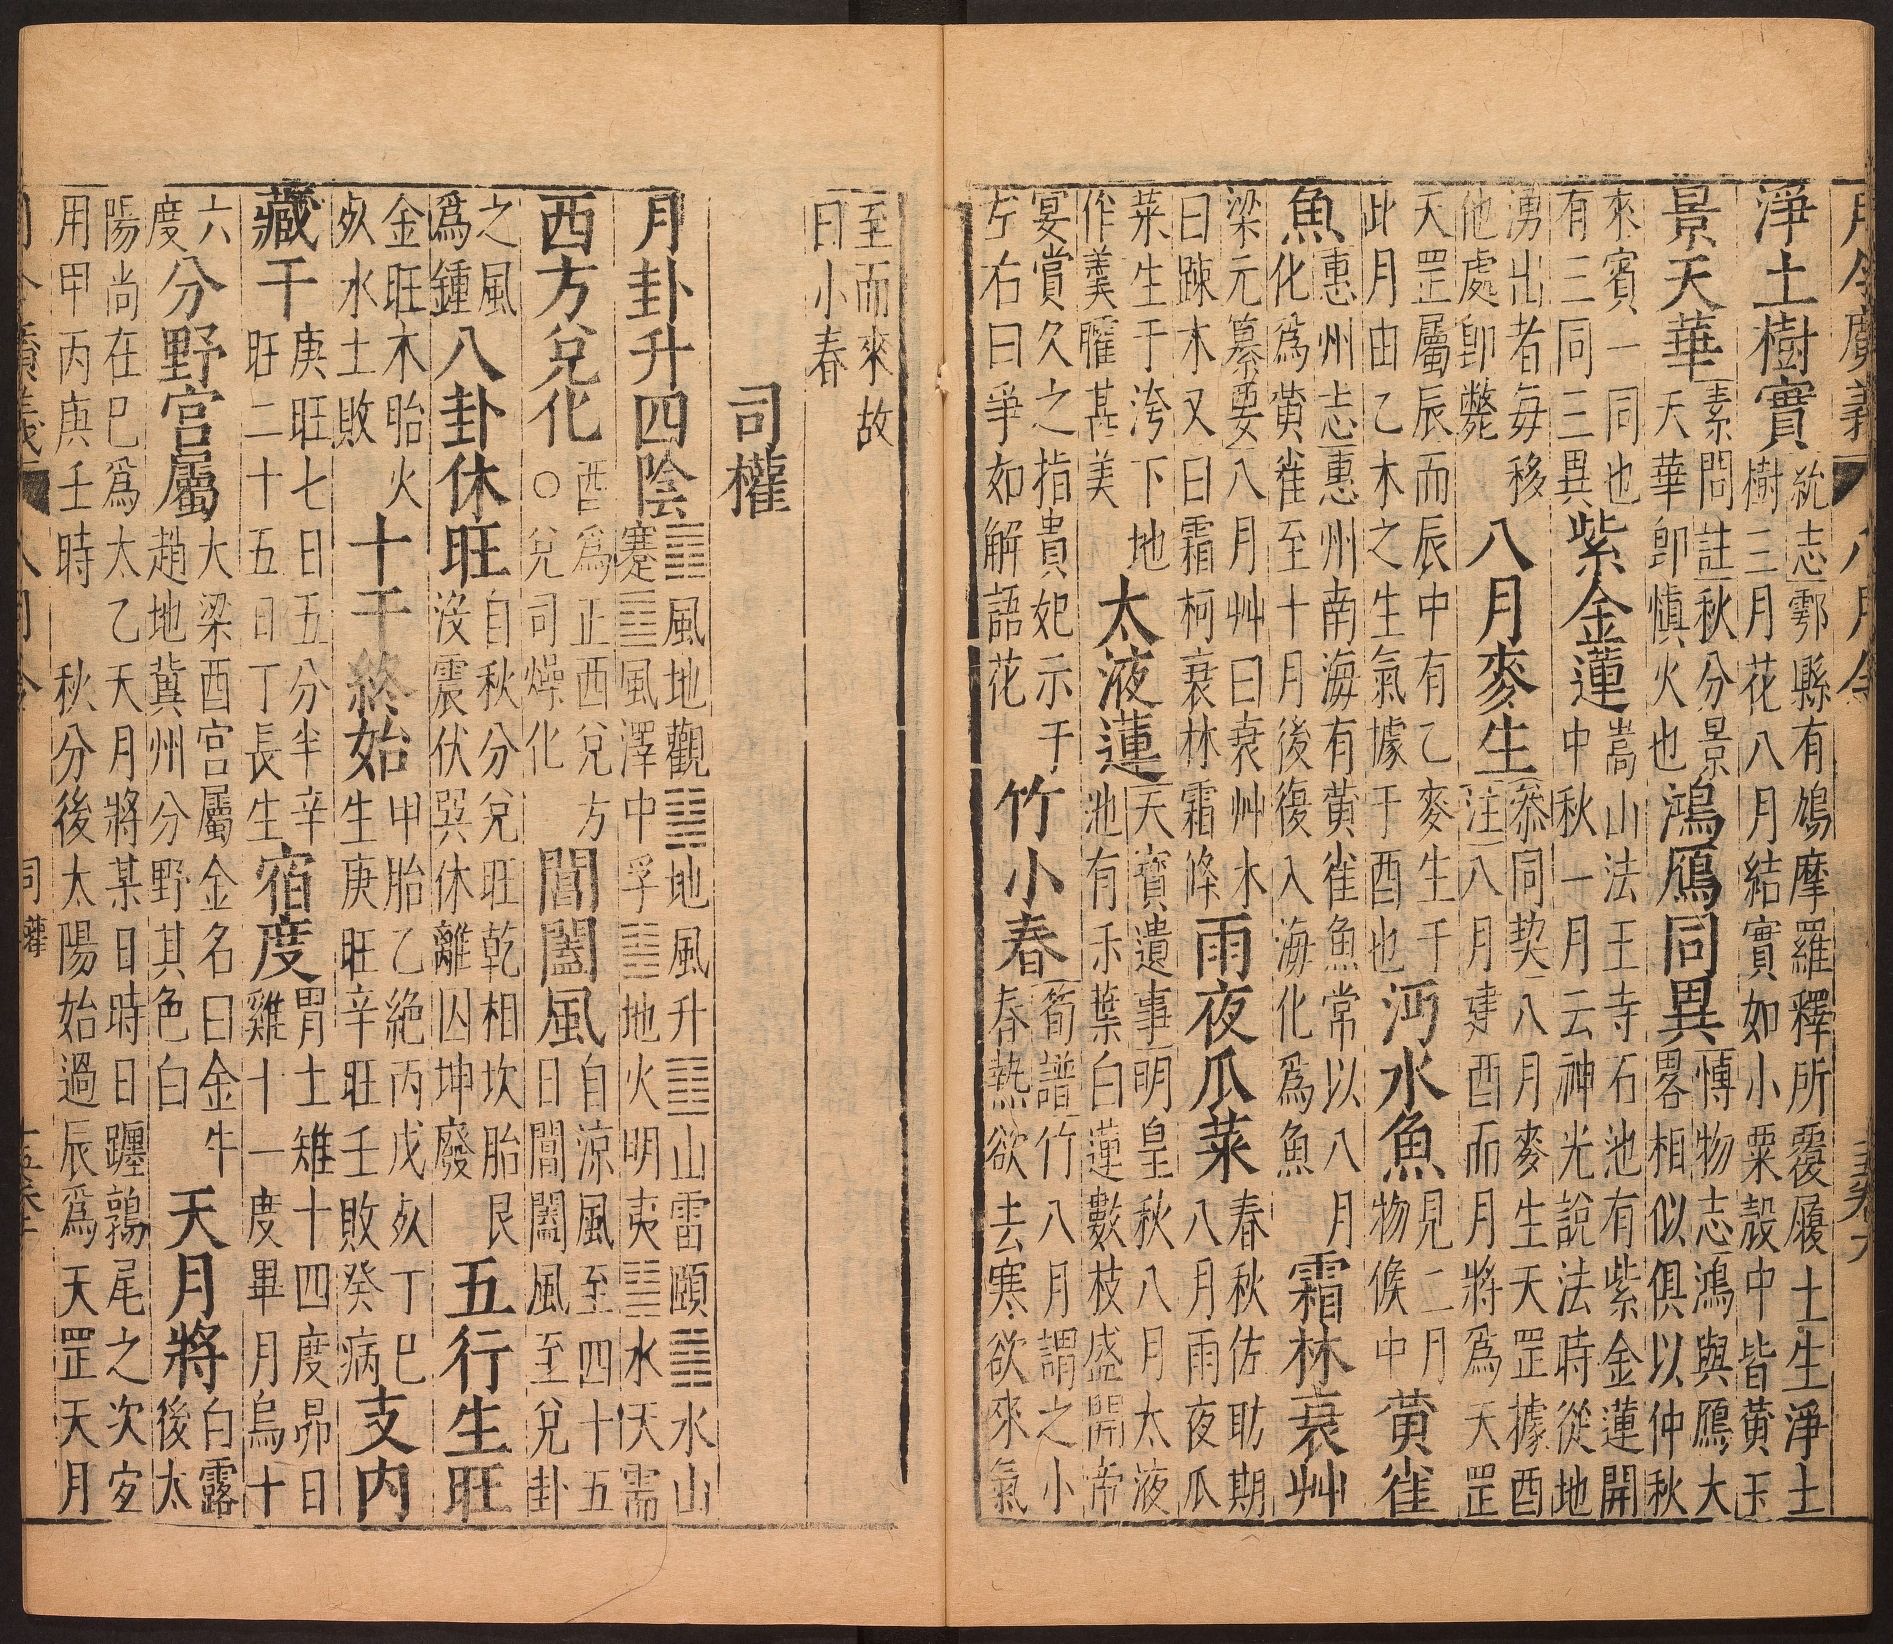 月令廣義 八月令
淨土樹實 統志鄠縣有鳩摩羅釋所覆履土生淨土
樹三月花八月結實如小粟殼中皆黄玉
景天華 素問註秋分景
天華卽慎火也
鴻鴈同異 博物志鴻與鴈大
畧相似俱以仲秋
來賓一同也
有三同三異
紫金蓮 嵩山法王寺石池有紫金蓮開
中秋一月云神光說法時從地
湧出者每移
他處卽斃
八月麥生 叅同契八月麥生天罡據酉
注八月建酉而月將爲天罡
天罡屬辰而辰中有乙麥生于
此月由乙木之生氣據于酉也
沔水魚 見二月
物候中
黄雀
魚 惠州志惠州南海有黄雀魚常以八月
化爲黄雀至十月後復入海化爲魚
霜林衰艸
梁元纂要八月艸曰衰艸木
曰踈木又曰霜柯衰林霜條
雨夜瓜菜 春秋佐助期
八月雨夜瓜
菜生于洿下地
作羹臛甚美
太液蓮 天寶遺事明皇秋八月太液
池有千葉白蓮數枝盛開帝
宴賞久之指貴妃示于
左右曰爭如解語花
竹小春 筍譜竹八月謂之小
春熱欲去寒欲來氣
至而來故
曰小春
司權
月卦升四陰 ䷓風地觀䷭地風升䷚山雷頤䷦水山
蹇䷼風澤中孚䷣地火明夷䷄水天需
西方兌化 酉爲正西兌方
○兌司燥化
閶闔風 自涼風至四十五
日閶闔風至兌卦
之風
爲鍾
八卦休旺 自秋分兌旺乾相坎胎艮
沒震伏巽休離囚坤廢
五行生旺
金旺木胎火
㱙水土敗
十干終始 甲胎乙絶丙戊㱙丁巳
生庚旺辛旺壬敗癸病
支内
藏干 庚旺七日五分半辛
旺二十五日丁長生
宿度 胃土雉十四度昴日
雞十一度畢月烏十
六
度
分野宮屬 大梁酉宮屬金名曰金牛
趙地冀州分野其色白
天月將 白露
後太
陽尚在巳爲太乙天月將某日時日躔鶉尾之次宐
用甲丙庚壬時 秋分後太陽始過辰爲天罡天月
月令廣義 八月令 司權